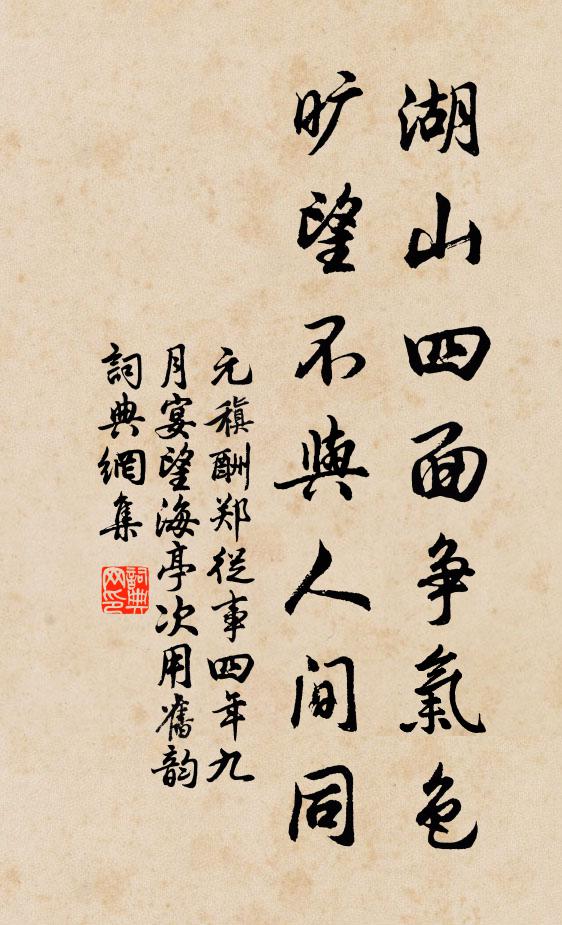 湖山四面争氣色
旷望不與人間同
元稹酬郑從事四年九
月宴望海亭次用舊韵
詞典網集
詞典
网印